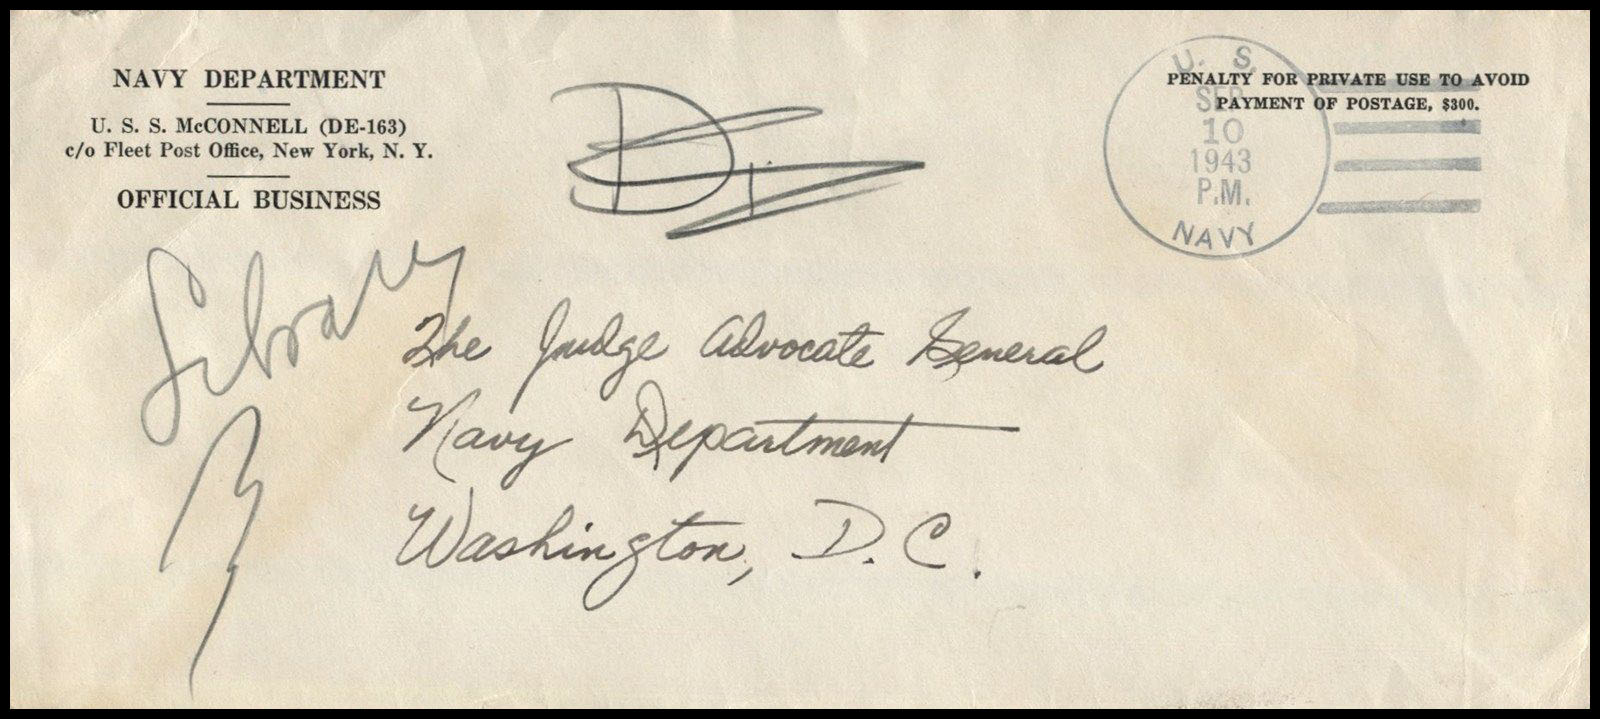 NAVY DEPARTMENT
U. S. S. McCONNELL (DE-163)
c/o Fleet Post Office, New York, N. Y.
OFFICIAL BUSINESS
PENALTY FOR PRIVATE USE TO AVOID
PAYMENT OF POSTAGE, $300.
U. S.
SEP
10
1943
P.M.
NAVY
Library
The Judge Advocate General
Navy Department
Washington, D. C.